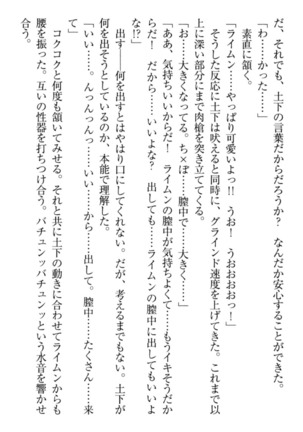 だ、それでも、土下の言葉だからだろうか? なんだか安心することができた。
「わ……かった……」
素直に頷く。
「ライムン……やっぱり可愛いよっ!! うお! うおおおおっ!」
そうした反応に土下は吠えると同時に、グラインド速度を上げてきた。これまで以
上に深い部分にまで肉槍を突き立ててくる。
「お……大きくなってる。ち×ぽ……膣中で……大きく……」
「ああ、気持ちいいからだ! ライムンの膣中が気持ちよくて……もうイキそうだか
らだ! だから……いいよな? 出しても……ライムンの膣中に出してもいいよ
な!?」
出す――何を出すとはやはり口にしてくれない。だが、考えるまでもない。土下が
何を出そうとしているのか、本能で理解した。
「いい……。んっんっんっ……いい……から……出して。膣中……たくさん……来
て」
コクコクと何度も頷いてみせる。それと共に土下の動きに合わせてライムンからも
腰を振った。互いの性器を打ちつけ合う。バチュンッバチュンッという水音を響かせ
合う。